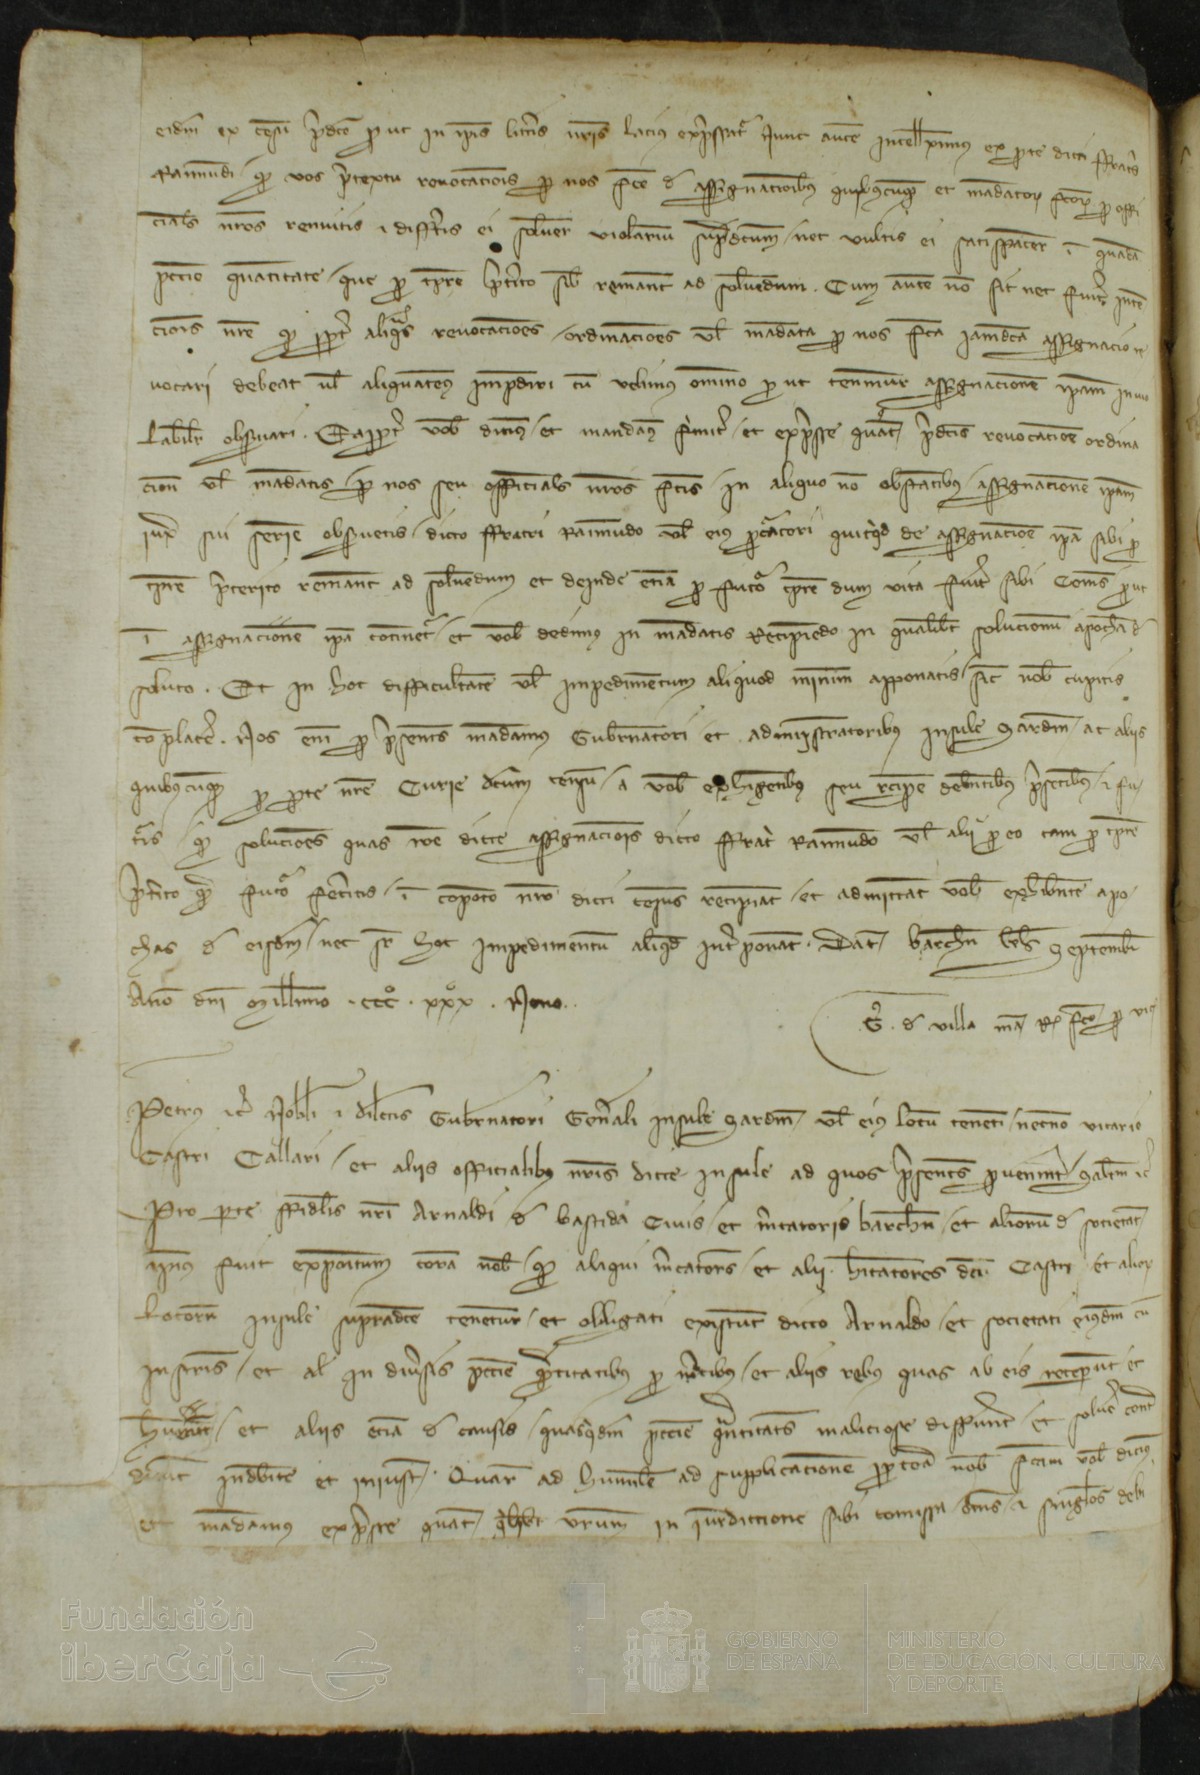 eidm ex censu predco prout in ipis litteris nris lacius expressatur Nunc autem intelleximus ex parte dicti ffratris
Raimundi qd vos pretextu revocationis p nos fce de assignacionibus quibuscumque et mandatorum fcorum p offi
ciales nros renuitis et differtis ei solvere violarium supradictum nec vultis ei satisfacere in quadam
peccunie quantitate que p tempore preterito sibi remanent ad solvendum. Cum autem non sit nec fuerit inten
cionis nre qd propter aliquas revocaciones ordinaciones vel mandata p nos fca iamdcam assignacionem
vocari debeat vel aliquatenus impediri cum velimus omnino prout tenemur assignacionem ipam invio
labiliter observari. Eapropter vobis dicimus et mandamus firmiter et expresse quatenus predictis revocacione ordina
cione vel mandatis p nos seu officiales nros fctis in aliquo non obstantibus assignacionem ipam
iuxta sui seriem observetis dicto ffratri Raimundo vel eius procuratori quicquid de assignacione ipa sibi p
tempore preterito remanent ad solvendum et deinde etiam p futuro tempore dum vita fuerit sibi Comes prout
in assignacionem ipa continetur et vobis dedimus in mandatis Recipiendo in qualibet solucionum apocham de
soluto. Et in hoc difficultatem vel impedimentum aliquod minime apponatis sicut nobis cupitis
complacere. Nos enim p presentes mandamus Gubernatori et administratoribus insule Sardinie ac aliis
quibuscumque p parte nre Curie dictum censum a vobis exhigentibus seu recipere debentibus presentibus et fu
turis qd soluciones quas racione dicte assignacionis dicto ffratri Raimundo vel alii p eo tam p tempore
preterito quam futuro feceritis in compoto nro dicti census recipiant et admittant vobis exhibente apo
chas de eisdem nec super hoc impedimentum aliquod interponant. Dat. barchn kls Septembr
Anno dni Millimo . ccc° . xxx° . Nono.
G. de villa ma Rx fco p vic
Petrus etc Nobili et dilectis Gubernatori Generali insule Sardinie vel eius locum tenenti necnon vicario
Castri Callari et aliis officialibus nris dicte insule ad quos presentes pervenerint Salutem etc
Pro parte ffidelis nri Arnaldi de bastida Civis et mercatoris barchn et aliorum de societate
ipius fuit expositum coram nobis qd aliqui mercatores et alii habitatores dci Castri et aliorum
locorum insule supradicte tenentur et obligati existunt dicto Arnaldo et societati eiusdem cum
instris et al in diversis peccunie quantitatibus p mercibus et aliis rebus quas ab eis receperunt et
habuerunt et aliis etiam de causis quasquidem peccunie quantitates maliciose differunt et solvere contra
dicunt indebite et iniuste. Quare ad humilem ad supplicacionem propterea nobis fctam vobis dicimus
et mandamus expresse quatenus quilibet vrum in iurediccione sibi comissa dictos et singulos debi
Fundación
iberCaja
GOBIERNO
DE ESPAÑA
MINISTERIO
DE EDUCACIÓN, CULTURA
Y DEPORTE